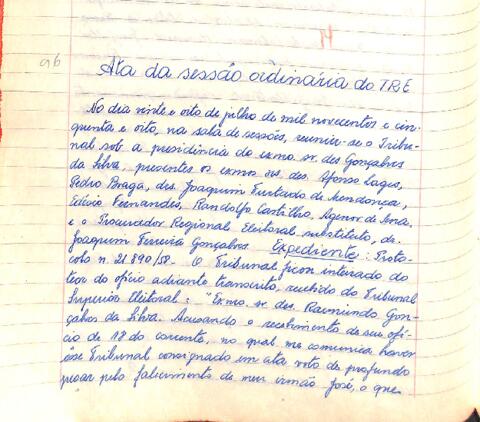 96
Ata da sessão ordinária do TRE
No dia vinte e oito de julho de mil novecentos e cin-
quenta e oito, na sala de sessões, reuniu-se o Tribu-
nal sob a presidência do exmo. sr. des. Gonçalves
da Silva, presentes os exmos. srs. des. Afonso Lages,
Pedro Braga, drs. Joaquim Furtado de Mendonça,
Edésio Fernandes, Randolfo Castilho, Agenor de Sena,
e o Procurador Regional Eleitoral substituto, dr.
Joaquim Ferreira Gonçalves. Expediente: Proto-
colo n. 21.890/58 - O Tribunal ficou inteirado do
teor do ofício adiante transcrito, recebido do Tribunal
Superior Eleitoral: "Exmo. sr. des. Raimundo Gon-
çalves da Silva. Acusando o recebimento de seu ofí-
cio de 18 do corrente, no qual me comunica haver
êsse Tribunal consignado em ata voto de profundo
pesar pelo falecimento de meu irmão José, o que